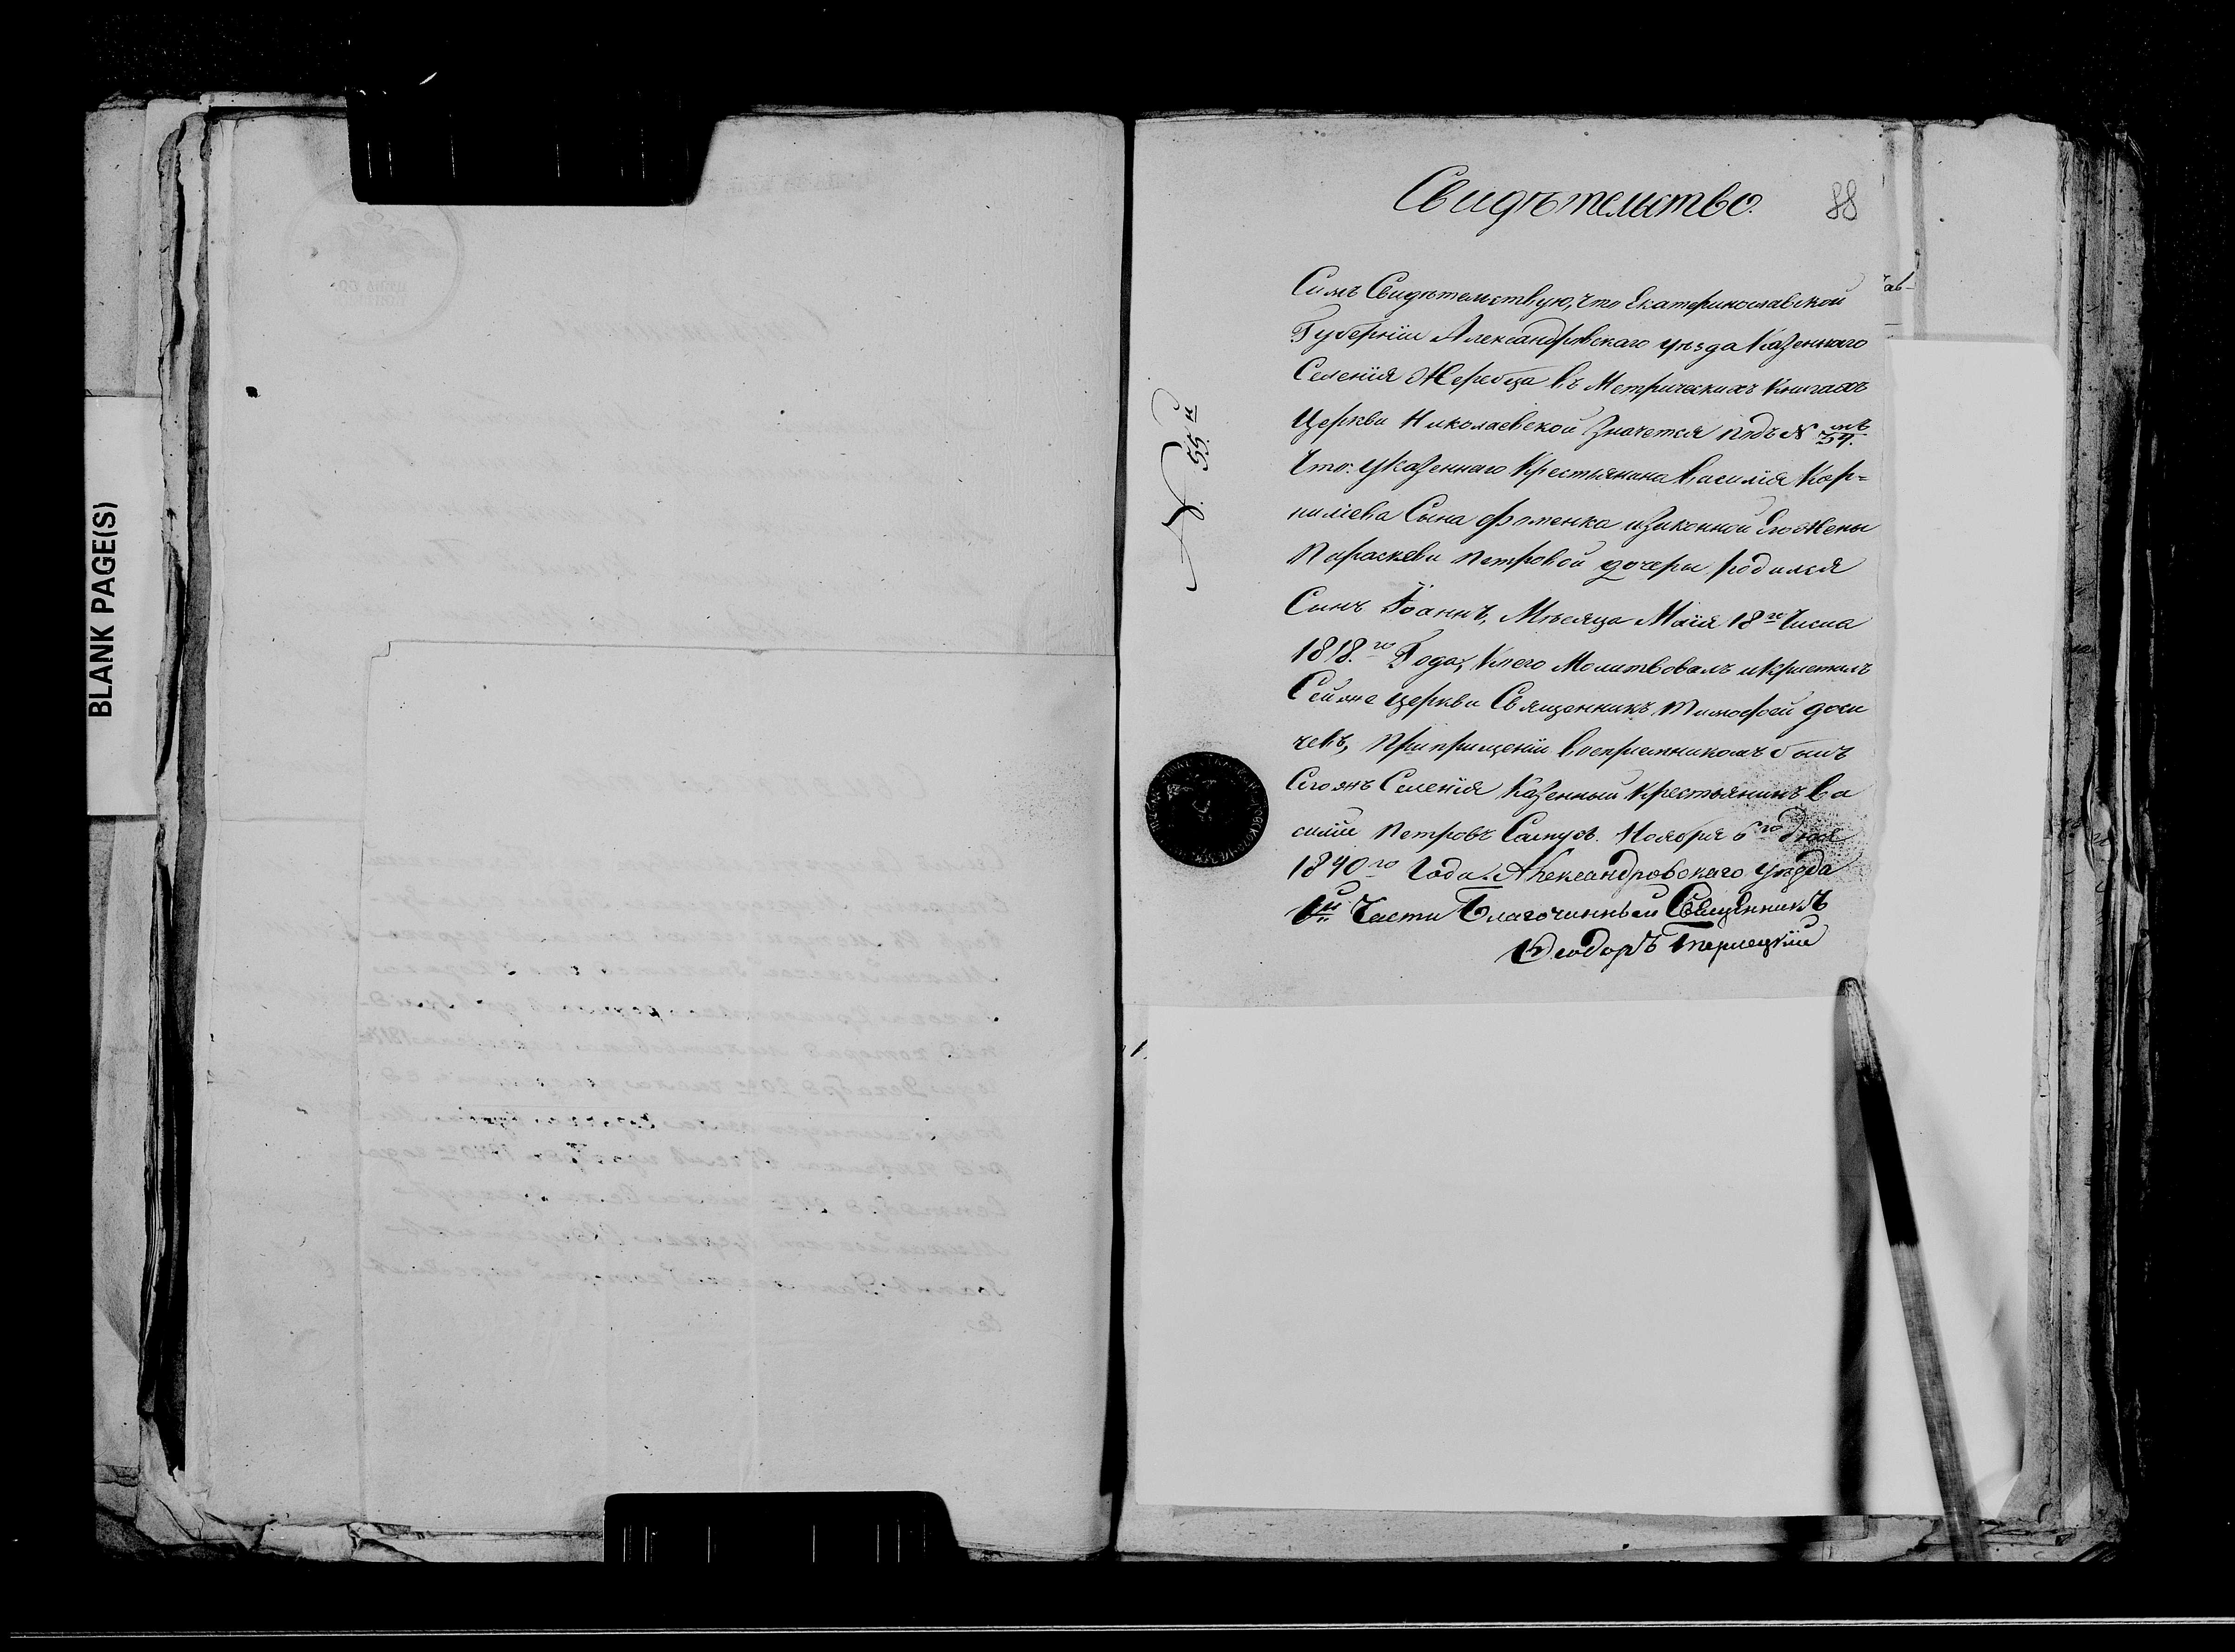 BLANK PAGE(S)
Свидѣтельство.
88
Симъ Свидѣтельствую, что Екатеринославской
Губерніи Александровскаго уѣзда Казеннаго
Селенія Жеребца въ Метрическихъ Книгахъ
Церкви Николаевской Значется подъ №
Что: У Казеннаго Крестьянина Василія Кор=
нилiева Сына Фоменка изаконной Его Жены
Параскеви Петровой дочери родился
Сынъ Іоаннъ, Мѣсяца Маія 18го Числа
1818.го Года, Коего Молитвовалъ икрестилъ
Сей же церкви Священникъ Тимофей
чевъ, Прикрещеніи Воспріемникомъ былъ
Селенія Казенный Крестьянинъ Ва
силій Петровъ Ноября 6го дня
1840го Года. Александровскаго уѣзда
1й Части Благочинный Священникъ
Ѳеодоръ
№. 55.й